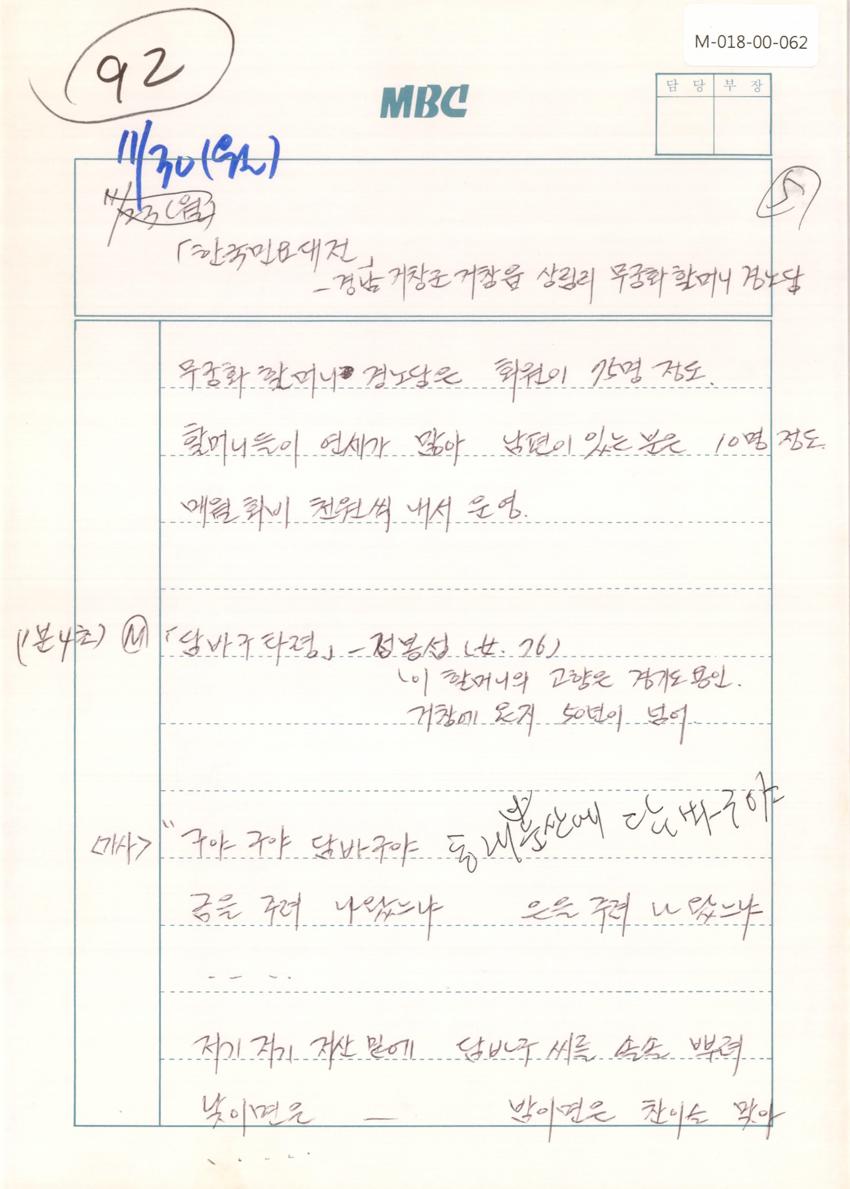 M-018-00-062
92
MBC
담 당 부 장
11/30(월)
11/23(월)
5
「한국민요대전」
- 경남 거창군 거창읍 상림리 무궁화 할머니 경노당
무궁화 할머니 경노당은 회원이 75명 정도.
할머니들이 연세가 많아 남편이 있는 분은 10명 정도.
매월 회비 천원씩 내서 운영.
(1분4초) Ⓜ 「담바구타령」 - 정봉섭 (女. 76)
이 할머니의 고향은 경기도 용인.
거창에 온지 50년이 넘어
<가사> " 구야 구야 담바구야 동래봉산에 담바구야
금을 주려 나왔느냐 은을 주려 나왔느냐
.....
저기 저기 저산 밑에 담바구 씨를 솔솔 뿌려
낮이면은 — 밤이면은 찬이슬 맞아
.....